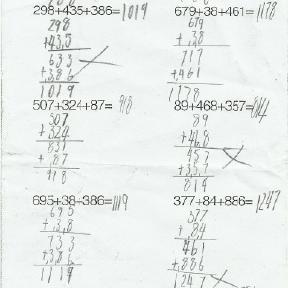 298+435+386=1019
298
+435
633
+386
1019
679+38+461=1178
679
+38
717
+461
1178
507+324+87=918
507
+324
831
+87
918
89+468+357=814
89
+468
457
+357
814
695+38+386=1119
695
+38
733
+386
1119
377+84+886=1247
377
+84
461
+886
1247